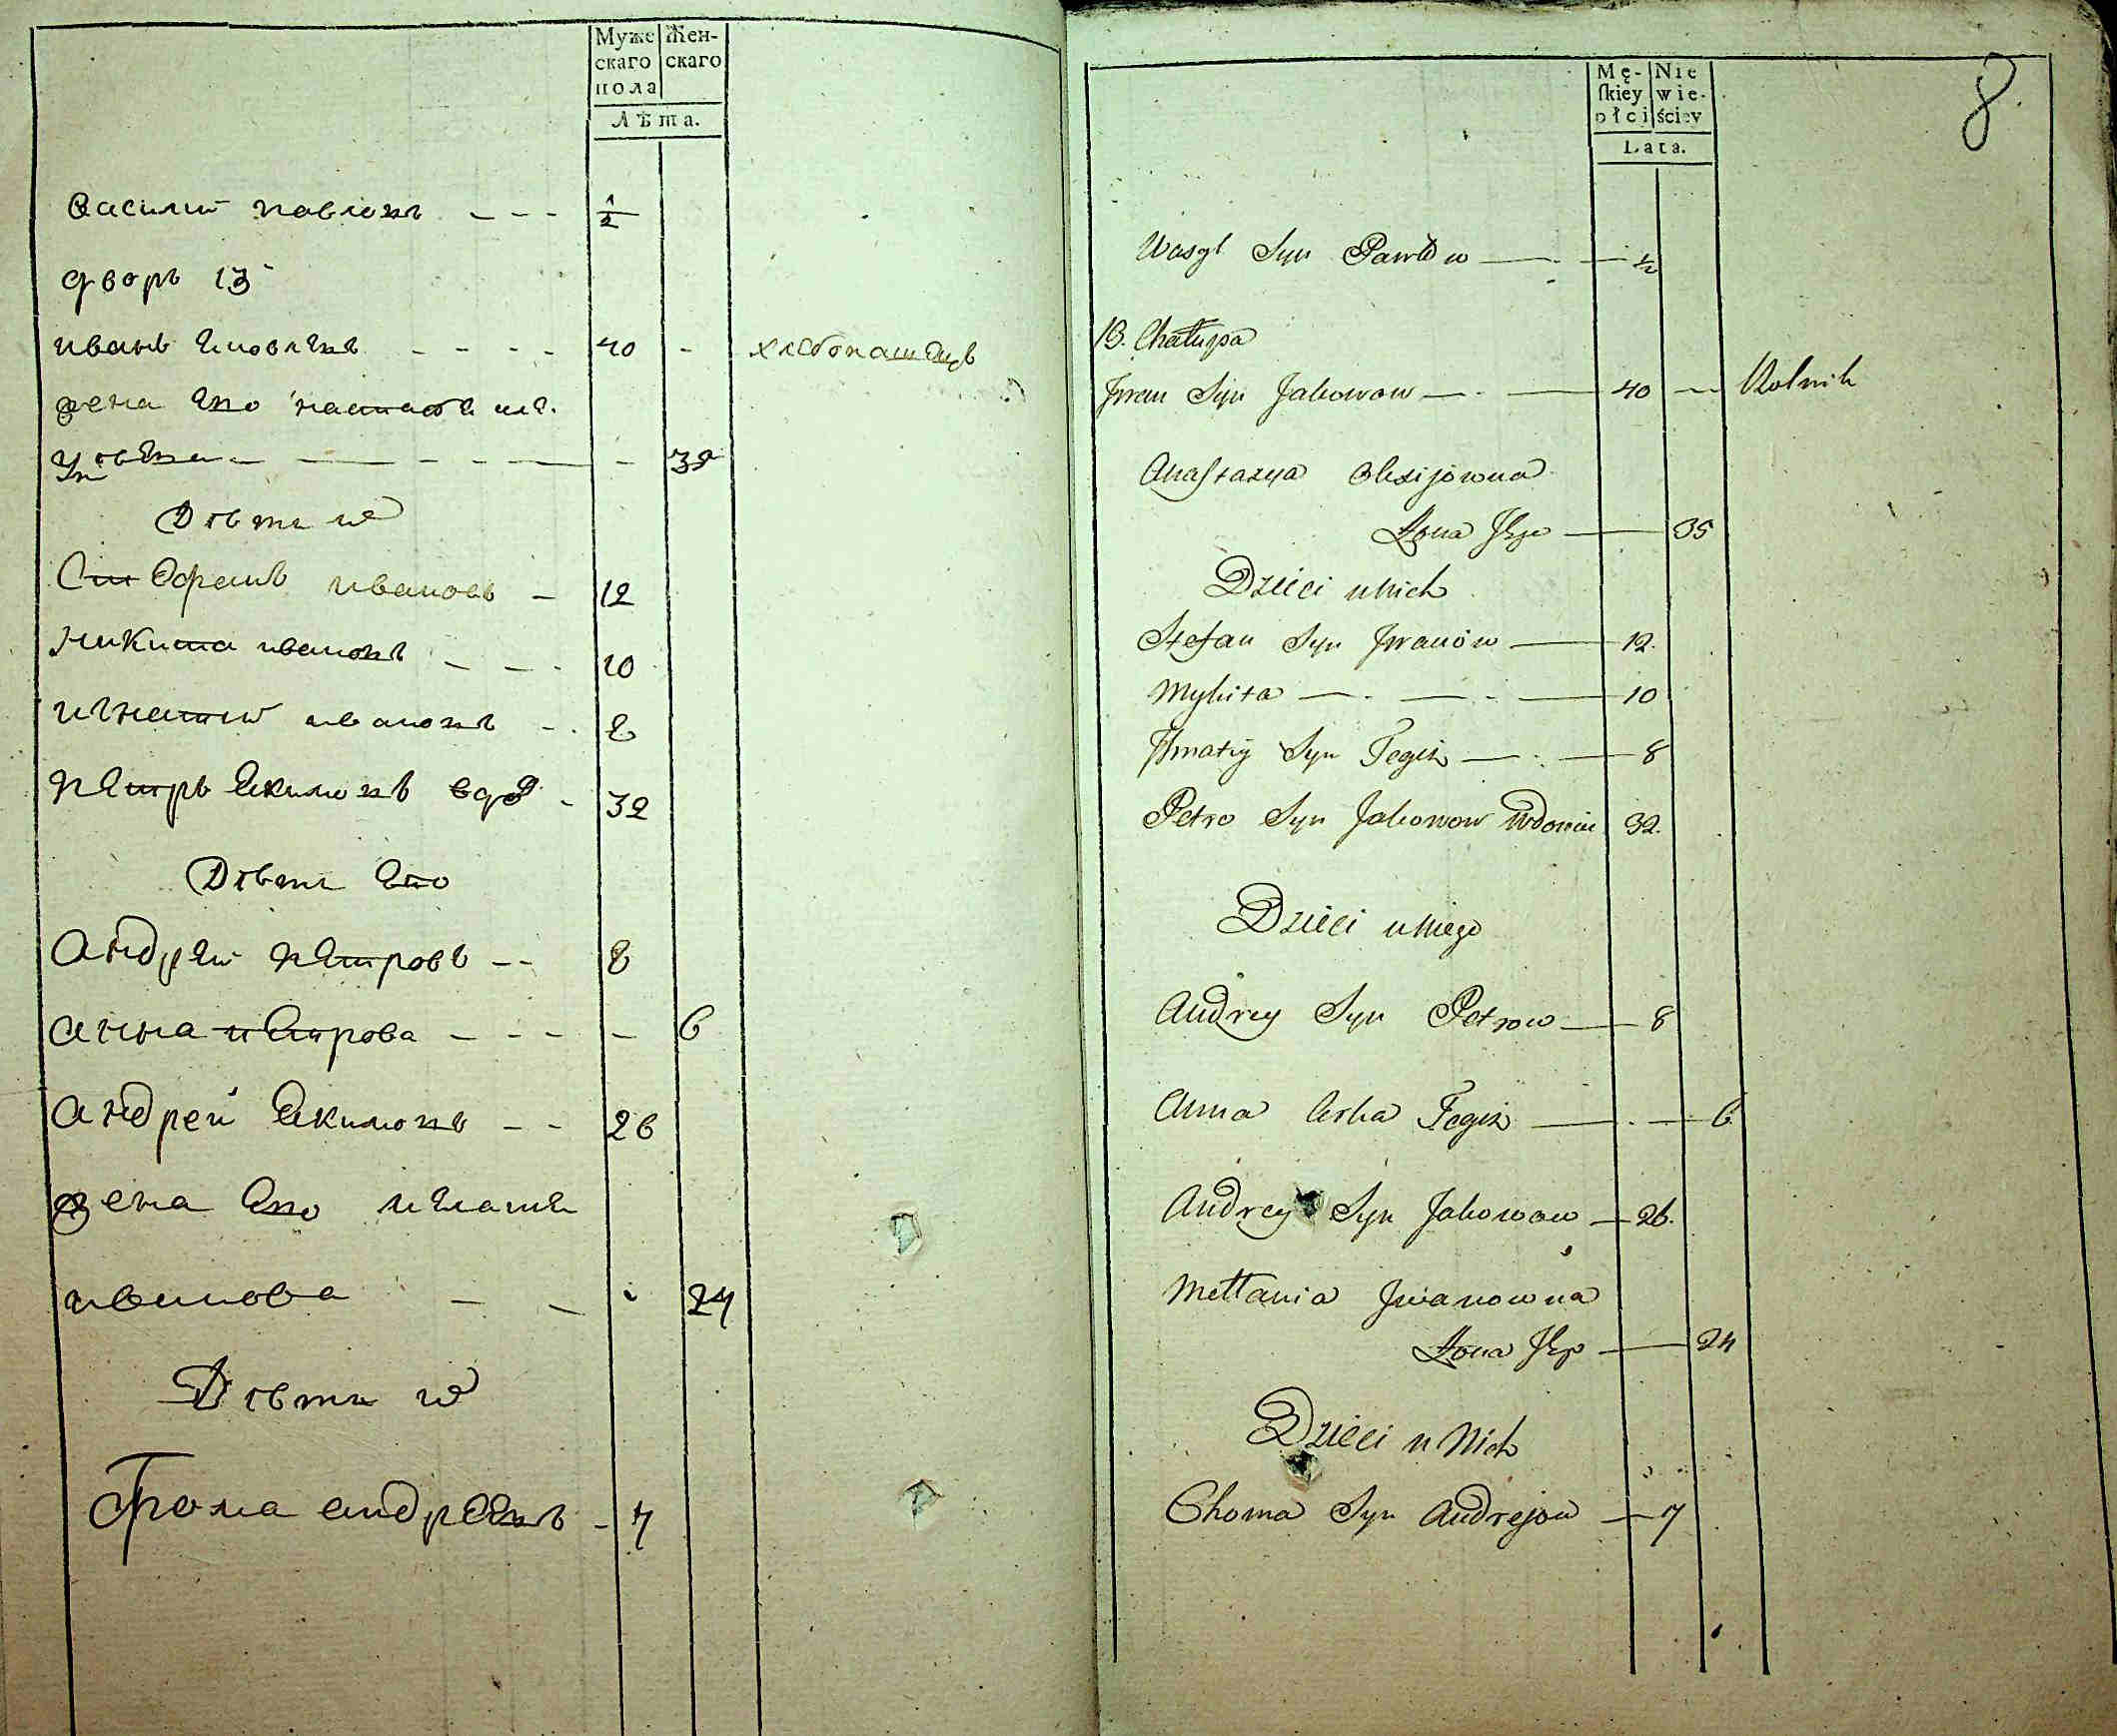 Муже
скаго
пола
Жен-
скаго
Лѣта.
василий павловъ - - - 1/2
дворъ 13
иванъ яковлевъ - - - - 40 - хлебопашецъ
жена его настасья але-
- - - - 35
Дѣти их
Стефанъ ивановъ - 12
никита ивановъ - - - 10
игнатий ивановъ - - 8
петръ якимовъ вдов - 32
Дѣти его
андрей петровъ - - 8
анна петрова - - - - 6
андрей якимовъ - - 26
жена его
иванова - - 24
Дѣти их
Фома андреевъ - 7
8.
Mę-
ſkiey
płci
Nie
wie-
ściey
Lata.
Wasyl Syn Pawłow — 1/2
13. Chałupa
Iwan Syn Jakowow — 40 — Rolnik
Anastazya Olexijowna
Żona Jego — 35
Dzieci u nich
Stefan Syn Iwanów — 12.
Mykita — 10
Ihnatiy Syn Tegiż — 8
Petro Syn Jakowow Wdowiec 32.
Dzieci u niego
Andrey Syn Petrow — 8
Anna Corka Tegiż — 6
Andrey Syn Jakowow — 26.
Mełłania Iwanowna
Żona Jego — 24
Dzieci u Nich
Choma Syn Andrejow — 7